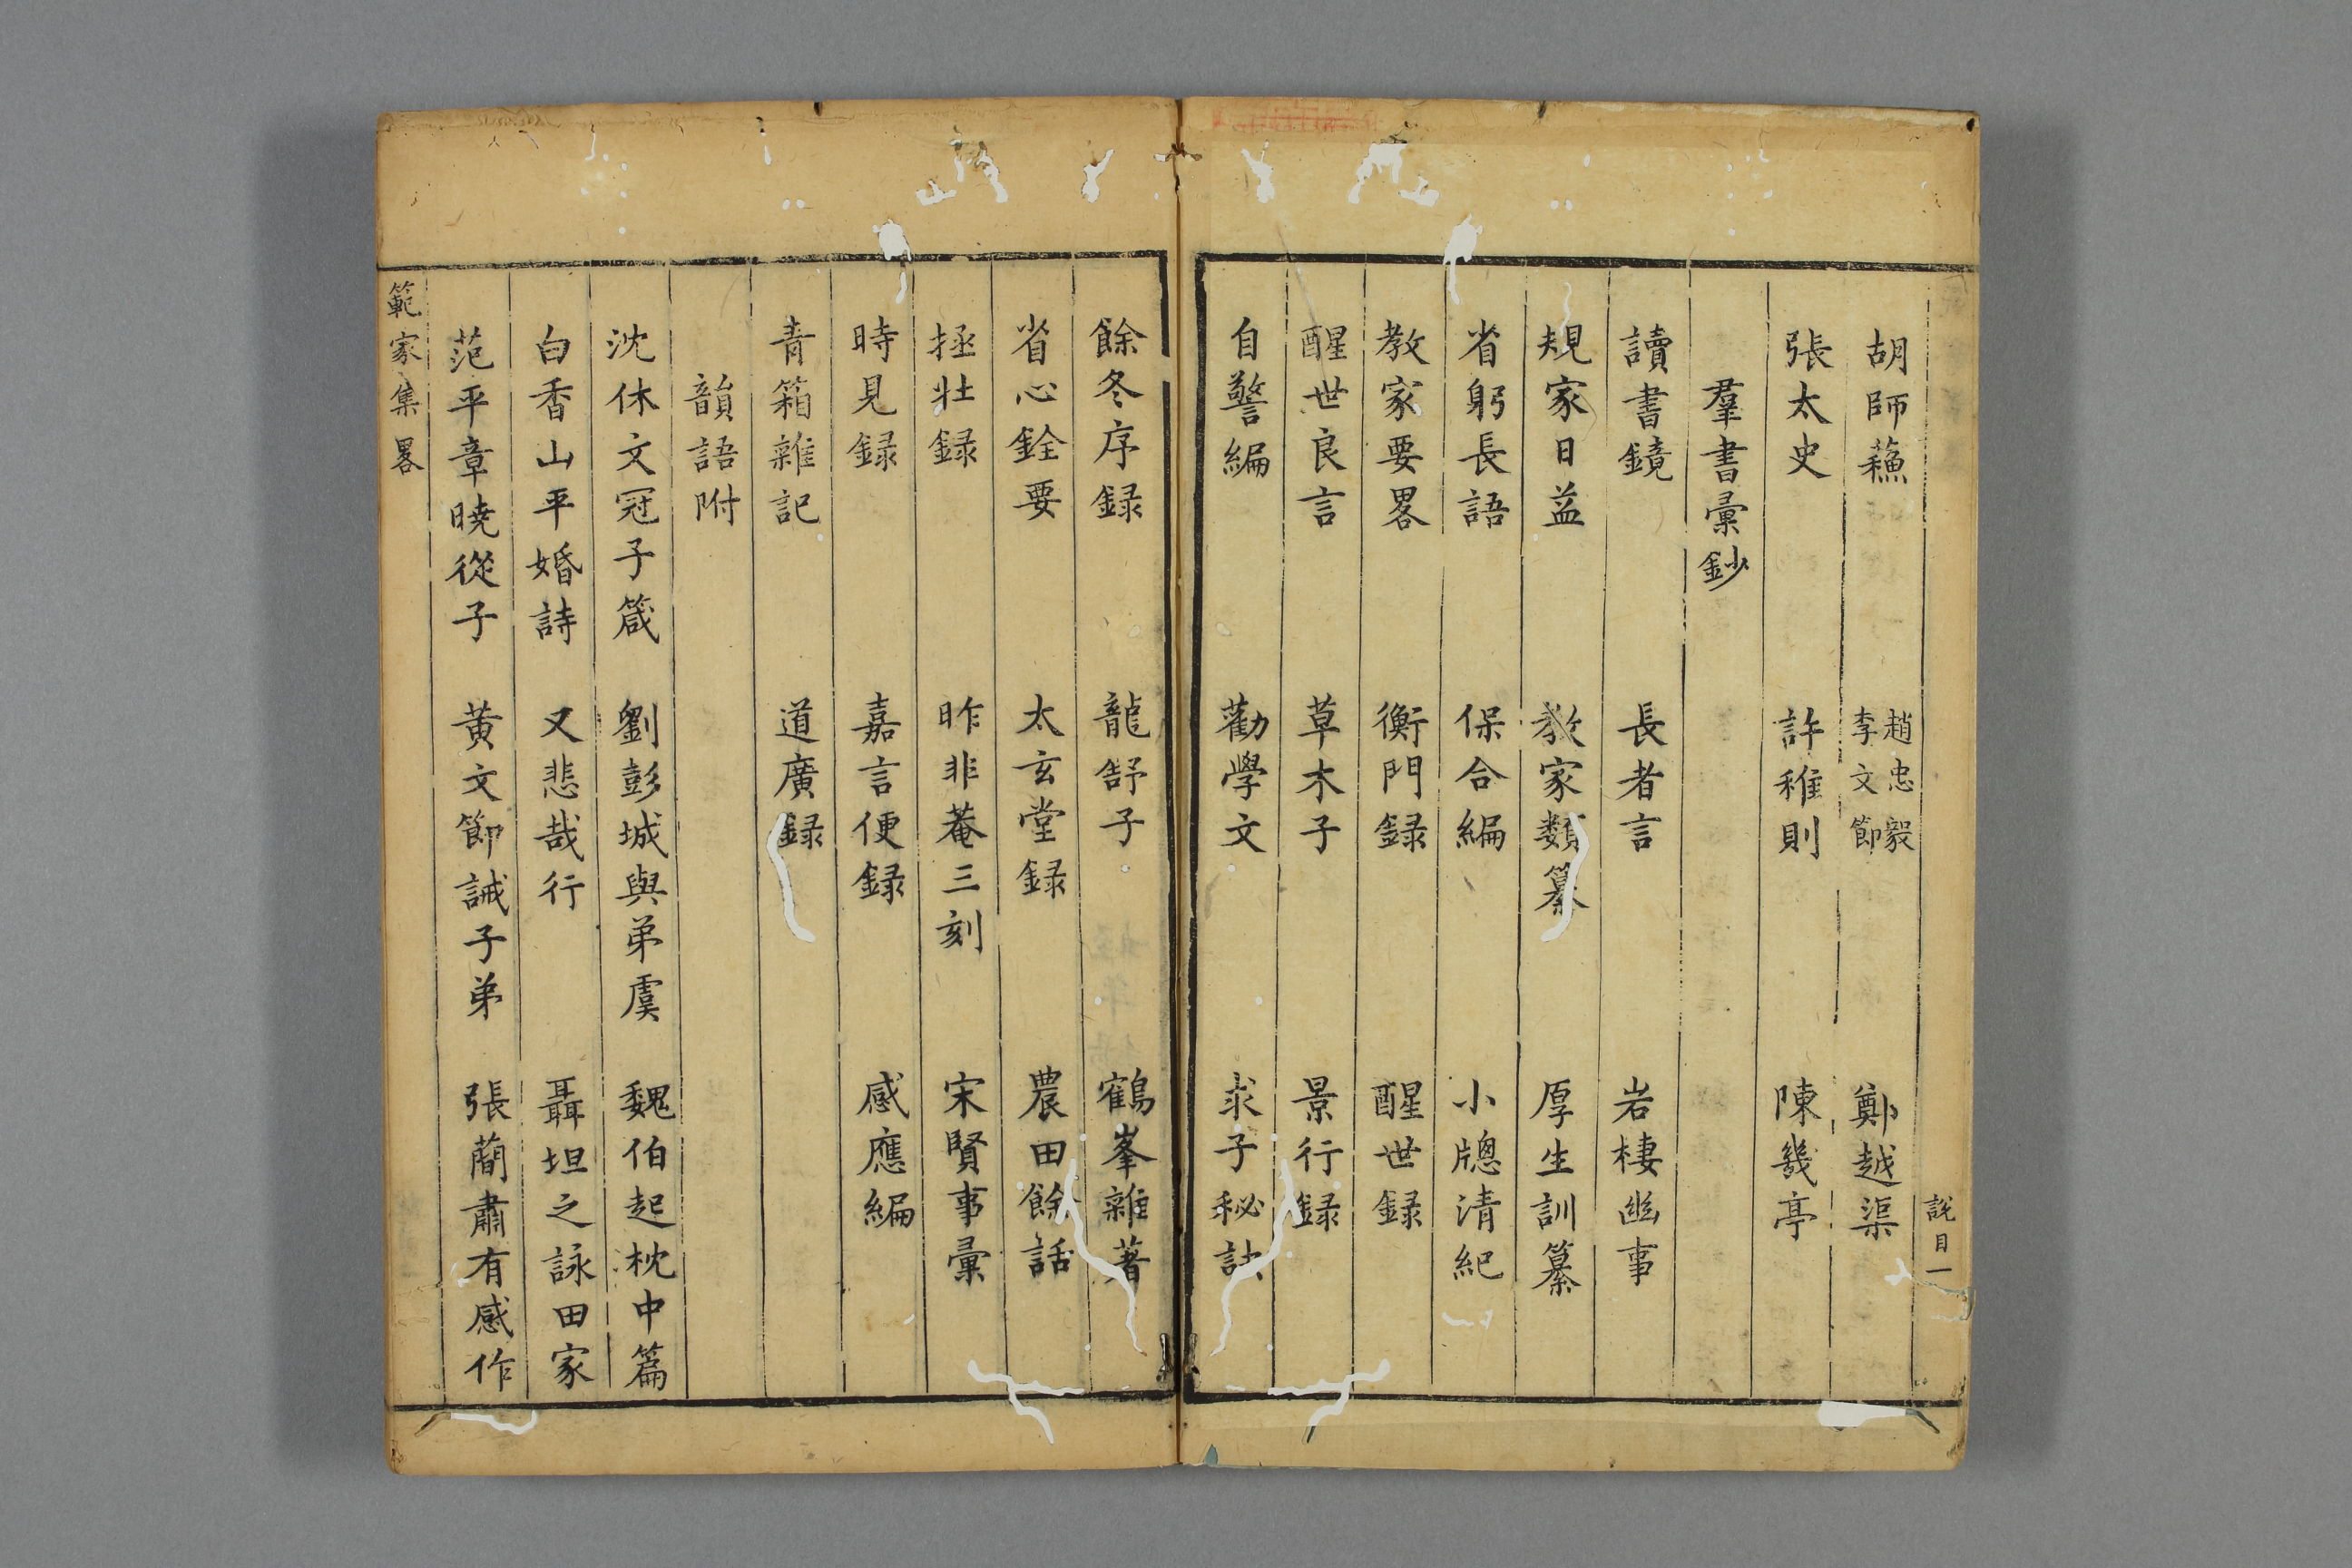 胡師蘓　趙忠毅李文節　鄭越渠
張太史　許稚則　陳幾亭
羣書彙鈔
讀書鏡　長者言　岩棲幽事
規家日益　教家類纂　厚生訓纂
省躬長語　保合編　小牕清紀
教家要畧　衡門録　醒世録
醒世良言　草木子　景行録
自警編　勸學文　求子秘訣
說目一
餘冬序録　龍舒子　鶴峯雜著
省心銓要　太玄堂録　農田餘話
拯壯録　昨非菴三刻　宋賢事彙
時見録　嘉言便録　感應編
青箱雜記　道廣録
韻語附
沈休文冠子箴　劉彭城與弟虞　魏伯起枕中篇
白香山平婚詩　又悲哉行　聶坦之詠田家
范平章曉從子　黃文節誡子弟　張蕳肅有感作
範家集畧